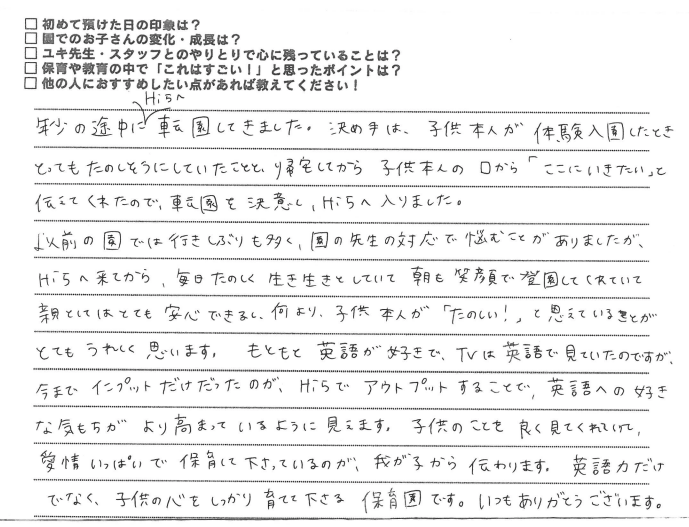 □ 初めて預けた日の印象は？
□ 園でのお子さんの変化・成長は？
□ ユキ先生・スタッフとのやりとりで心に残っていることは？
□ 保育や教育の中で「これはすごい！」と思ったポイントは？
□ 他の人におすすめしたい点があれば教えてください！
Hi5へ
年少の途中に転園してきました。決め手は、子供本人が体験入園したとき
とってもたのしそうにしていたことと、帰宅してから子供本人の口から「ここにいきたい」と
伝えてくれたので、転園を決意し、Hi5へ入りました。
以前の園では行きしぶりも多く、園の先生の対応で悩むことがありましたが、
Hi5へ来てから、毎日たのしく生き生きとしていて朝も笑顔で登園してくれていて
親としてはとても安心できるし、何より、子供本人が「たのしい！」と思えていることが
とてもうれしく思います。もともと英語が好きで、TVは英語で見ていたのですが、
今までインプットだけだったのが、Hi5でアウトプットすることで、英語への好き
な気もちがより高まっているように見えます。子供のことを良く見てくれていて、
愛情いっぱいで保育して下さっているのが、我が子から伝わります。英語力だけ
でなく、子供の心をしっかり育てて下さる保育園です。いつもありがとうございます。